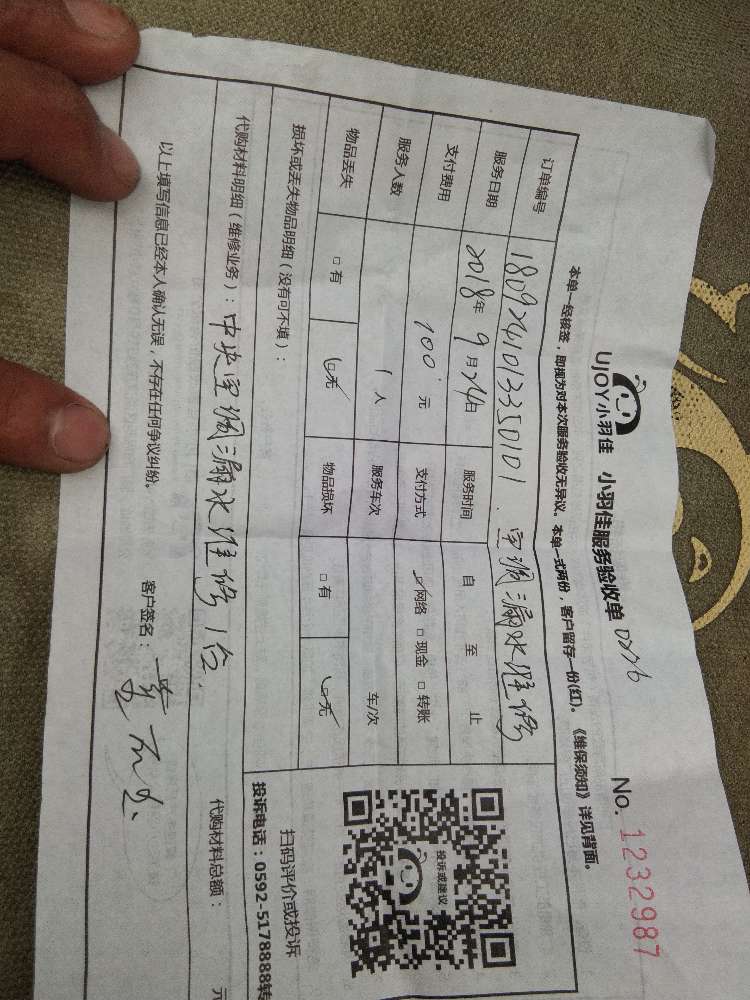 UJOY小羽佳 小羽佳服务验收单 No. 1232987
本单一经核签，即视为对本次服务验收无异议。本单一式两份，客户留存一份(红)。《维保须知》详见背面。
订单编号 1809241013350101. 空调漏水维修
服务日期 2018年9月24日 服务时间 自 至 止
支付费用 100.元 支付方式 ☑网络 □现金 □转账
服务人数 1人 服务车次 车/次
物品丢失 □有 ☑无 物品损坏 □有 ☑无
损坏或丢失物品明细（没有可不填）：
代购材料明细（维修业务）：中央空调漏水维修1台. 代购材料总额： 元
以上填写信息已经本人确认无误，不存在任何争议纠纷。 客户签名：
投诉或建议
扫码评价或投诉
投诉电话：0592-5178888转